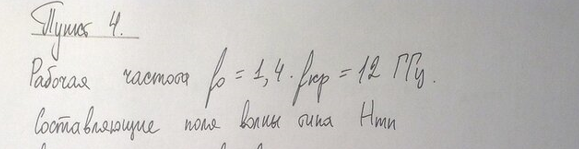 Пункт 4.
Рабочая частота f₀ = 1,4 · fкр = 12 ГГц.
Составляющие поля волны типа Hmn